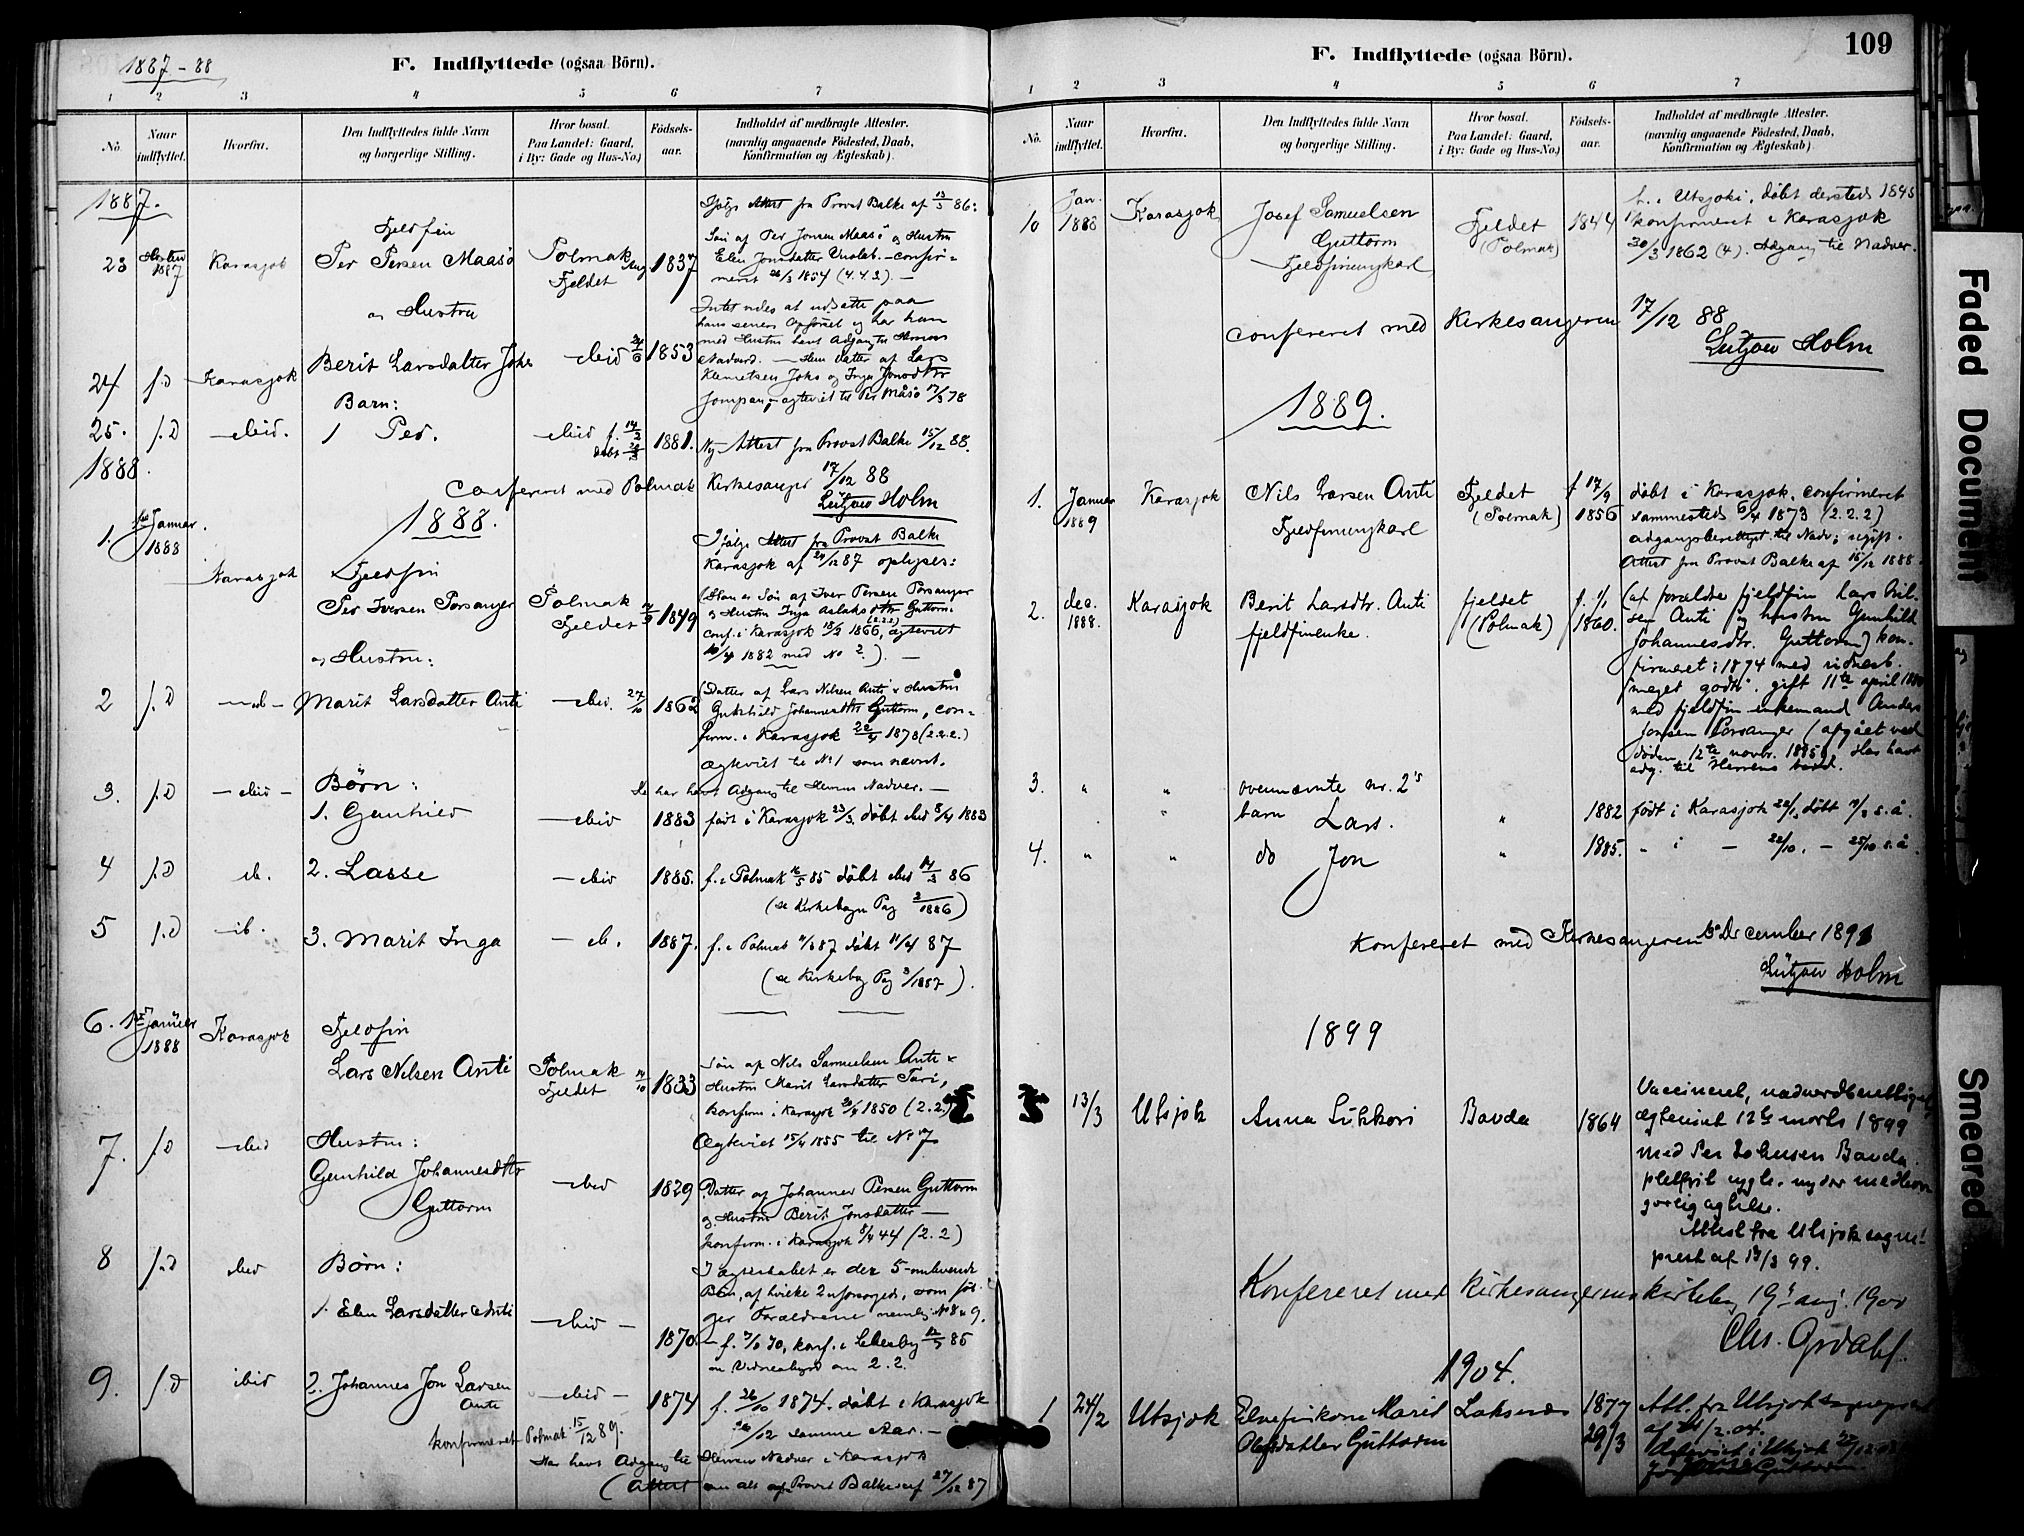 1887 - 88
F. Indflyttede (ogsaa Börn).
1 2 3 4 5 6 7
No.
Naar
indflyttet.
Hvorfra.
Den Indflyttedes fulde Navn
og borgerlige Stilling.
Hvor bosat.
Paa Landet: Gaard,
i By: Gade og Hus-No.)
Födsels-
aar.
Indholdet af medbragte Attester.
(navnlig angaaende Födested, Daab,
Konfirmation og Ægteskab).
1887.
23 Høsten 1887 Karasjok
Fjeldfin
Per Persen Maasø
og Hustru
Polmak
Fjeldet
1837
Ifølge Attest fra Provst Balke af 13/3 86:
Søn af Per Jonsen Maasø og Hustru
Elen Jonsdatter - confir-
meret 1854 (4.4.3). -
Intet vides at udsætte paa
hans senere Opførsel og har han
med Hustru havt Adgang til Herrens
Nadverd. - Hun Datter af Lars
Klemetsen Johs og Inga
ægteviet til Per Måsø 17/3 78
24 f.D Karasjok Berit Larsdatter Johs ibid 1853
Barn:
25. f.D ibid. 1 Per. ibid f. 14/2 1881. Ny Attest fra Provst Balke 15/12 88.
1888.
Confereret med Polmak Kirkesanger 17/12 88
Lützow Holm
1888.
1. Januar 1888
Karasjok Fjeldfin
Per Iversen Porsanger
og Hustru:
Polmak
Fjeldet
1849
Ifølge Attest fra Provst Balke
Karasjok af 24/12 87 oplyses:
(Han er Søn af Iver Persen Porsanger
og Hustru Inga Aslaksdtr Guttorm.
conf. i Karasjok 18/3 1866, ægteviet
10/4 1882 med No 2.). -
2 f.D ib - Marit Larsdatter Anti ibid. 27/10 1862
(Datter af Lars Nilsen Anti & Hustru
Gunhild Johannesdtr Guttorm, con-
firm. i Karasjok 22/4 1878 (2.2.2.)
ægteviet til No 1 som nævnt.
De har havt Adgang til Herrens Nadver. -
3. f.D - ibid - Børn:
1. Gunhild - ibid 1883 født i Karasjok 23/3. døbt ibid 8/4 1883
4 f.D ib. 2. Lasse - ibid 1885. f. i Polmak 16/5 85 døbt ibid 14/3 86
(se Kirkebogen Pag 2/1886)
5 f.D ib. 3. Marit Inga - ib. 1887. f. i Polmak 11/3 87 døbt 11/4 87
(se Kirkebog Pag 3/1887).
6. 1ste Januar 1888 Karasjok Fjeldfin
Lars Nilsen Anti Polmak Fjeldet 14/10 1833
Søn af Nils Samuelsen Anti &
Hustru Marit Larsdatter Tari,
Konfirm i Karasjok 1850 (2.2)
Ægteviet 15/4 1855 til No 7
7. f.D ibid Hustru:
Gunhild Johannesdtr
Guttorm
ibid 1829
Datter af Johannes Persen Guttorm
og Hustru Berit Jonsdatter -
konfirm. i Karasjok 8/4 44 (2.2)
8 f.D ibid Børn:
1. Elen Larsdatter Anti - ibid - 1870
I ægteskabet er der 5 omlevende
Børn, af hvilke 2 uforsorgede, som føl-
ger Forældrene nemlig No 8 & 9.
- f. 7/10 70, konf. i Lebesby 85
m Vidnesbyrd om 2.2.
9. f.D ibid 2. Johannes Jon Larsen
Anti
- ibid - 1874 f. 26/10 1874. døbt i Karasjok
26/12 samme Aar. -
konfirmeret Polmak 15/12 89.
Har havt Adgang til Herrens Nadver i Karasjok
(Attest om alt af Provst Balke af 27/12 87
109
F. Indflyttede (ogsaa Börn).
1 2 3 4 5 6 7
No.
Naar
indflyttet.
Hvorfra.
Den Indflyttedes fulde Navn
og borgerlige Stilling.
Hvor bosat.
Paa Landet: Gaard,
i By: Gade og Hus-No.)
Födsels-
aar.
Indholdet af medbragte Attester.
(navnlig angaaende Födested, Daab,
Konfirmation og Ægteskab).
10 Jan. 1888 Karasjok Josef Samuelsen
Guttorm
Fjeldfinungkarl
Fjeldet
(Polmak)
1844
f. i Utsjoki, døbt dersteds 1845
konfirmeret i Karasjok
30/3 1862 (4). Adgang til Nadver.
confereret med Kirkesangeren 17/12 88
Lützow Holm
1889.
1. Januar 1889 Karasjok Nils Larsen Anti
Fjeldfinungkarl
Fjeldet
(Polmak)
f 17/9 1856
døbt i Karasjok, confirmeret
sammesteds 6/4 1873 (2.2.2)
adgangsberettiget til Nadv; ugift.
Attest fra Provst Balke af 15/12 1888.
2. dec. 1888. Karasjok Berit Larsdtr. Anti
fjeldfinenke.
fjeldet
(Polmak)
f. 1/1 1860.
(af forældre fjeldfin Lars Nil-
sen Anti og hustru Gunhild
Johannesdtr. Guttorm) kon-
firmeret i 1874 med vidnesb.
"meget godt". gift 11te april 1880
med fjeldfin enkemand Anders
Jonsen Porsanger (afgået ved
døden 12te novbr. 1885). Har havt
adg. til Herrens bord.
3. " " ovennævnte nr. 2's
barn Lars. " 1882 født i Karasjok 22/1, døbt s. å.
4. " " do Jon " 1885. " i - 22/10. - 25/10 s. å.
Konfereret med Kirkesangeren 15 December 1893
Lützow Holm
1899
13/3 Utsjok Anna Lukkari Bavda 1864
Vaccineret, nadverdberettiget,
ægteviet 12te marts 1899
med Per Johnsen Bavda
pletfrit rygte, nyder
borgerlig agtelse.
Attest fra Utsjok sogne-
prest af 13/3 99.
Konfereret med Kirkesangerens kirkebog 19de aug. 1900
Chr. Opdahl
1904.
1 24/2 Utsjok Elvefinkone Marit
Olafsdatter Guttorm
Laksnes 1877
29/3
Att. fra Utsjok sogneprest
af 21/2.04.
Ægteviet i Utsjok
Guttorm.
Faded Document
Smeared